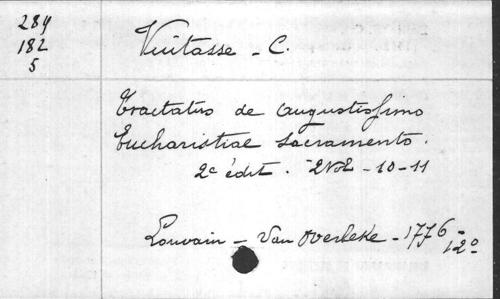 284
182
5
Vuitasse - C.
Tractatus de Augustissimo
Eucharistiae Sacramento.
2e édit. 2 Vol - 10-11
Louvain - Van Overbeke - 1776 -
12º